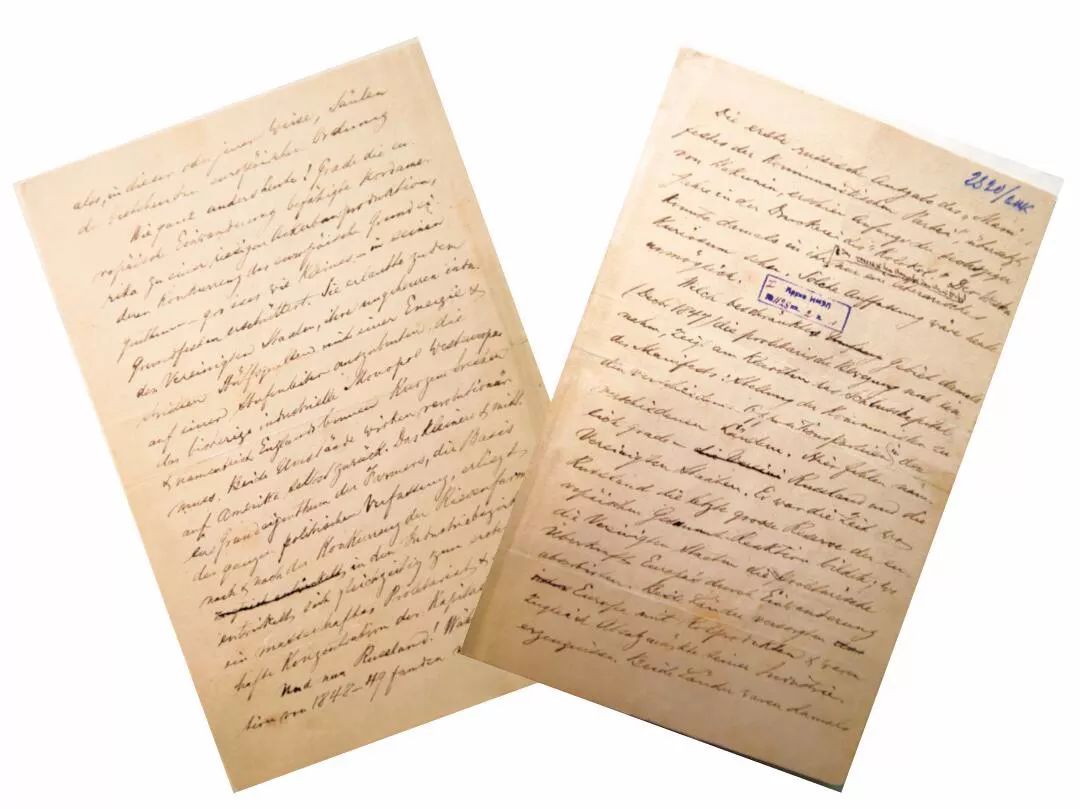 also, in dieser oder jener Weise, Säulen
der bestehenden europäischen Ordnung
Wie ganz anders heute! Grade die eu-
ropäische Einwanderung befähigte Nordame-
rika zu einer riesigen Ackerbauproduktion,
deren Konkurrenz das europäische Grundei-
genthum – grosses wie kleines – in seinen
Grundfesten erschüttert. Sie erlaubte zudem
den Vereinigten Staaten, ihre ungeheuren indu-
striellen Hülfsquellen mit einer Energie &
auf einer Stufenleiter auszubeuten, die
das bisherige industrielle Monopol Westeuropas
& namentlich Englands binnen Kurzem brechen
muss. Beide Umstände wirken revolutionär
auf Amerika selbst zurück. Das kleinere & mitt-
lere Grundeigenthum der Farmers, die Basis
der ganzen politischen Verfassung, erliegt
nach & nach der Konkurrenz der Riesenfarms
in den Industriebezirken
entwickelt sich gleichzeitig zum ersten
ein massenhaftes Proletariat &
hafte Konzentration der Kapita
Und nun Russland! Wäh
tion von 1848-49 fanden
2820/
Die erste russische Ausgabe des „Mani-
festes der Kommunistischen Partei", übersetzt
von Bakunin, erschien Anfangs der sechziger
Jahre in der Druckerei des Kolokol. Der Westen
konnte damals in ihr nur ein
Kuriosum sehn. Solche Auffassung wäre heute
unmöglich.
Welch beschränktes Gebiet damals
(Dezbr. 1847) die proletarische Bewegung noch ein-
nahm, zeigt am klarsten das Schlusskapitel
des Manifests: Stellung der Kommunisten zu
den verschiednen Oppositionsparteien in den
verschiednen Ländern. Hier fehlen näm-
lich grade Russland und die
Vereinigten Staaten. Es war die Zeit, wo
Russland die letzte grosse Reserve der eu-
ropäischen Gesammt-Reaktion bildete; wo
die Vereinigten Staaten die proletarische
Überkraft Europas durch Einwanderung
absorbirten. Beide Länder versorgten
Europa mit Rohprodukten & waren
zugleich Absatzmärkte seiner Industrie-
erzeugnisse. Beide Länder waren damals